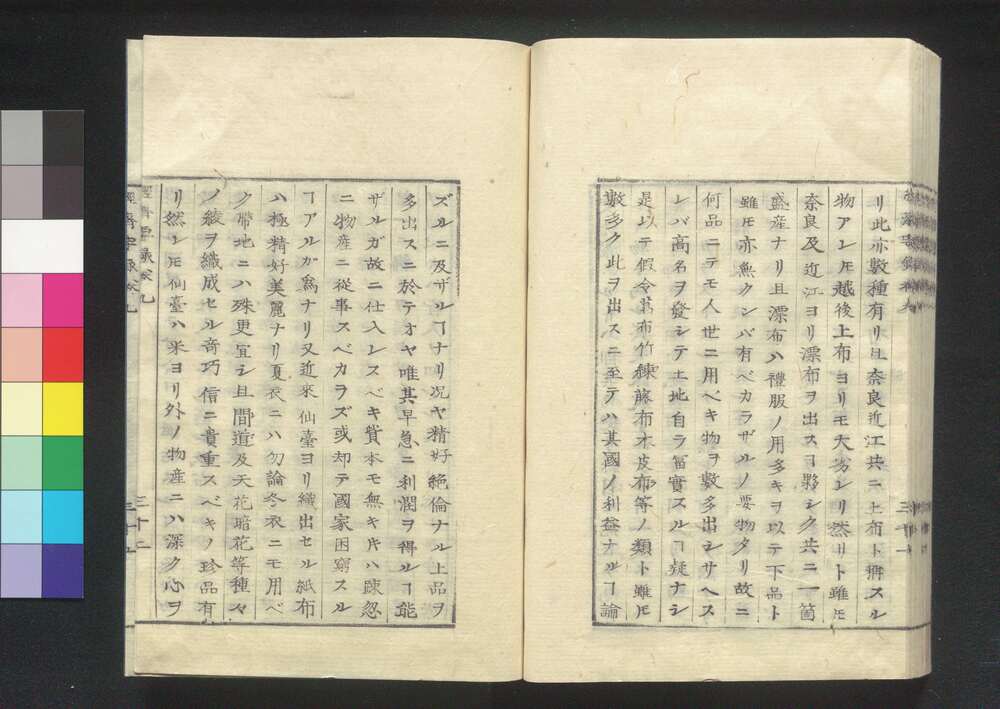 リ此亦數種有リ且奈良近江共ニ上布ト稱スル
物アレ𪜈越後上布ヨリモ大劣レリ然リト雖𪜈
奈良及近江ヨリ漂布ヲ出スヿ夥シク共ニ一箇
盛産ナリ且漂布ハ禮服ノ用多キヲ以テ下品ト
雖𪜈亦無クンバ有ベカラザルノ要物タリ故ニ
何品ニテモ人世ニ用ベキ物ヲ數多出シサヘス
レバ高名ヲ發シテ土地自ラ冨實スルヿ疑ナシ
是以テ假令葛布竹練藤布木皮布等ノ類ト雖𪜈
數多ク此ヲ出スニ至テハ其國ノ利益ナルヿ論
三十一
ズルニ及ザルヿナリ况ヤ精好絶倫ナル上品ヲ
多出スニ於テオヤ唯其早急ニ利潤ヲ得ルヿ能
ザルガ故ニ仕入レスベキ貨本モ無キ片ハ疎忽
ニ物産ニ從事スベカラズ或却テ國家困窮スル
ヿアルガ爲ナリ又近來仙臺ヨリ織出セル紙布
ハ極精好美麗ナリ夏衣ニハ勿論冬衣ニモ用ベ
ク帶地ニハ殊更宜シ且間道及天花暗花等種々
ノ綾ヲ織成セル奇巧信ニ貴重スベキノ珍品有
リ然レ𪜈仙臺ハ米ヨリ外ノ物産ニハ深ク心ヲ
經濟要録卷九
三十二